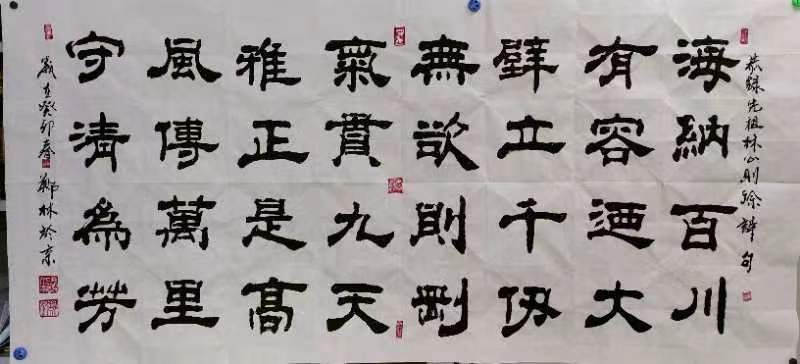 恭録先祖林公則徐詩句
海納百川
有容迺大
壁立千仞
無欲則剛
氣貫九天
雅正是高
風傳萬里
守清為芳
歲在癸卯春鄭林於京